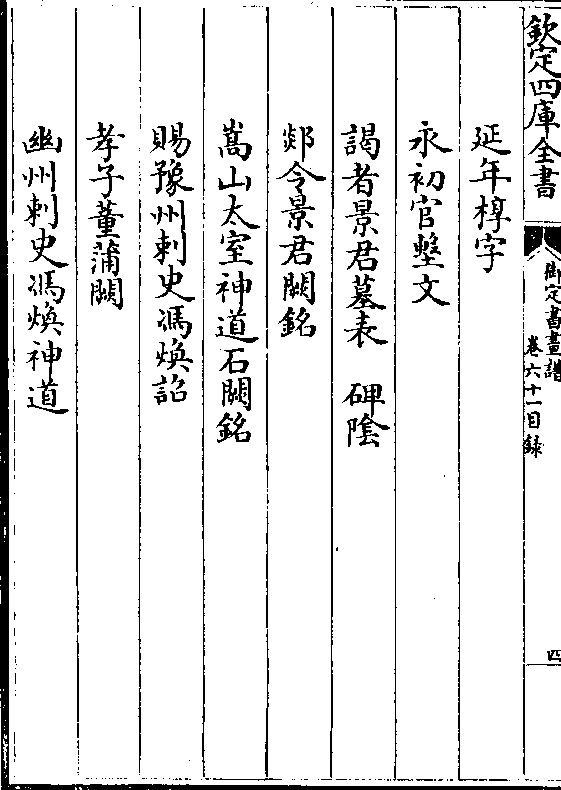 欽定四庫全書
御定書畫譜
卷六十一目錄
四
延年椁字
永初官墼文
謁者景君墓表　碑陰
郯令景君闕銘
嵩山太室神道石闕銘
賜豫州刺史馮煥詔
孝子董蒲闕
幽州刺史馮煥神道